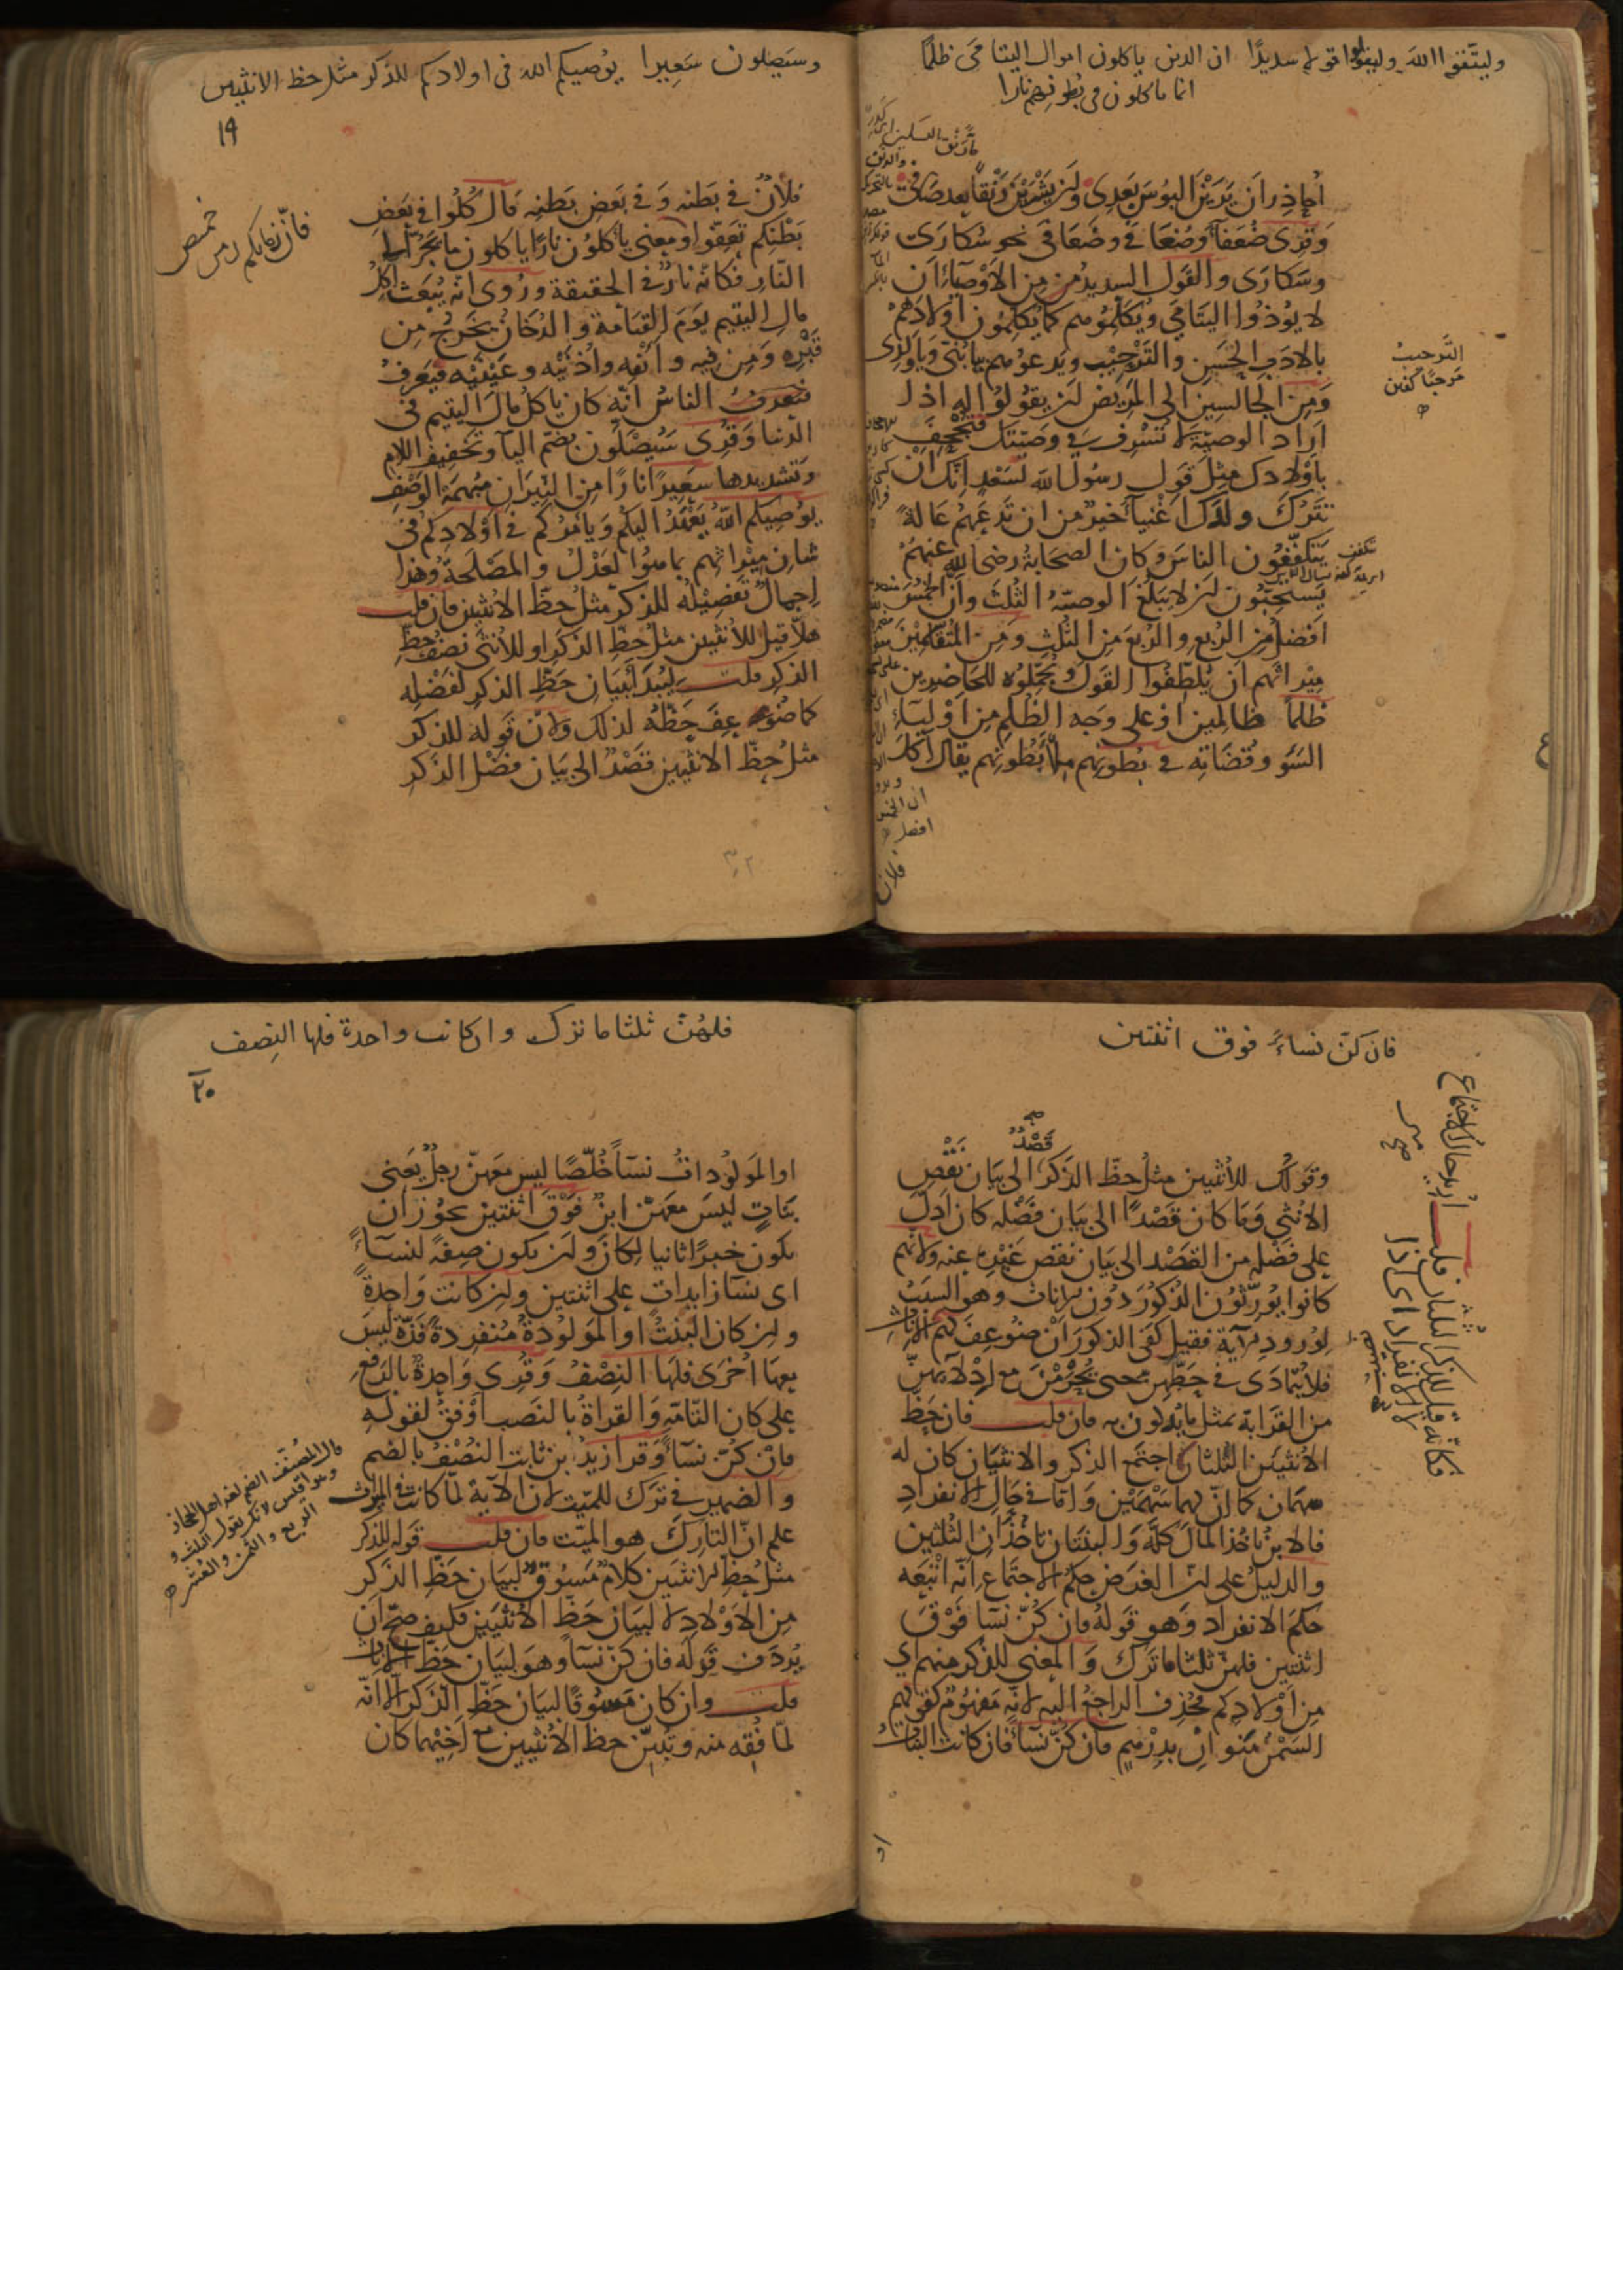 وليتقوا الله وليقولوا قولا سديدًا ان الذين ياكلون اموال اليتامى ظلمًا
انما ياكلون فى بطونهم نارا
أحاذر أن يَرَيْنَ البؤسَ بَعدى ولن يَشْرَبْنَ رَنْقاً بعد صافى
وقرى ضُعَفَآء وضُعَافى وضَعَافى نحو سُكارى
وسَكارى والقول السديد من الاوصياء ان
لا يؤذوا اليتامى ويكلموهم كما يكلمون اولادهم
بالادب الحسن والترحيب ويدعوهم يا بُنَىّ ويا ولدى
ومن الجالسين الى المريض ان يقولوا له اذا
اراد الوصية لا تسرف فى وصيتك فتجحف
باولادك مثل قول رسول الله لسعد انك ان
تترك ولدك اغنياء خير من ان تدعهم عالة
يتكففون الناس وكان الصحابة رضى الله عنهم
يستحبون ان لا يبلغ الوصية الثلث وأن الخمس
افضل من الربع والربع من الثلث ومن المتقاسمين
ميراثهم ان يلطفوا القول ويجملوه للحاضرين
ظلمًا ظالمين او على وجه الظلم من اولياء
السَّوْ وقضاته فى بطونهم ملأ بطونهم يقال اكل
الترحيب
مرحبا كفتن
ان الخمس
افضل
فلان
وسَيَصلون سَعِيرا يوُصيكم الله فى اولادكم للذكر مثل حظ الانثيين
١٩
فلانٌ فى بَطنه وَفى بَعض بَطنِه قال كُلُوا فى بَعضِ
بَطْنِكم تَعِفّوا ومعنى ياكلون نارًا ياكلون ما يَجُرّ الى
النّارِ فكانه نارٌ فى الحقيقة ورُوى انّه يُبْعَث آكلُ
مالِ اليتيم يوَمَ القيامة والدُخانُ يخرجُ من
قَبْرِه ومن فيه وانفه واُذنَيْه وعَيْنَيْه فيَعرِفُ
فيعرفُ الناسُ انّه كان ياكل مالَ اليتيم فى
الدّنيا وَقُرِى سَيُصْلَون بضمّ اليآ وتخفيف اللام
وتشديدها سعيرًا نارًا من النيران مُبهمَةَ الوَصْفِ
يوُصيكم اللهُ يَعْهَدُ اليكم ويامُركم فى اولادكم فى
شان ميراثهم بما هوا لعَدْلُ والمَصْلَحة وهذا
اِجمالٌ تفصِيْلُه للذكر مثلُ حظّ الانثيين فان قلت
هلّا قيل للاُنثيين مثلُ حظّ الذكَر او للاُنثى نصفُ حظِّ
الذكر قلت ليُبْدَأ ببيان حَظِّ الذكر لفَضْلِه
كما ضُوعِفَ حَظّهُ لذلك ولانّ قَولهُ للذكر
مثلُ حظّ الانثيين قَصْدٌ الى بيان فَضْل الذكر
فان زمانكم زمن
خميص
فان كنّ نساءً فوق اثنتين
قَصْدٌ
وقولك للاُنثيين مثلُ حظّ الذكر الى بيان نَقْصِ
الانثى وَما كان قَصْدًا الى بيان فَضْلِه كان اَدلَّ
على فَضْلِه من القصْد الى بيان نقصِ غَيْرِه عنه ولانّهم
كانوا يُورِّثُون الذُكورَ دُونَ الاناث وهو السَببُ
لوُرود الآية فقيل كفى الذكورَ اَنْ ضُوعِفَ لهم الاناث
فلا يُتمادَى فى حَظِّهِنّ حتى يُحْرَمْنَ مع اِدْلآئهِنّ
من القرَابة بمثل ما يُدلون به فان قلت فان حَظّ
الاُنثيَيْن الثُلُثان اجتمع الذكر والانثيان كان له
سَهْمانِ كما انّ لهما سَهْمَيْن وَامّا فى حَالِ الانفرادِ
فالابنُ ياخذُ المالَ كلّه وَالبنتان تاخُذان الثُلثين
والدليلُ على ان الغَرَض حكمُ الاجتماع انّه اَتْبَعَه
حكمَ الانفراد وهو قَولهُ فان كُنّ نسآ فوقَ
اثنتين فلهنّ ثلثا ما تَرَك وَالمعنى للذكر منهم اى
مِن اَوْلادِكم فحُذِفَ الراجعُ اليه لانّه مَفهُومٌ كقولهم
السَمْنُ مَنَوانِ بدِرْهَمٍ فان كُنّ نسآ فان كانت البَناتُ
اُريد حال الاجتماع
فكانه قيل للذكر الثلثان قلت
لا الانفراد اى اذا
او
فلهُنّ ثلثا ما ترك وان كانت واحدة فلها النِصف
٢٠
اوالمَولُودَاتُ نسآ خُلّصًا ليس مَعهنّ رجلٌ يَعنى
بَناتٍ ليسَ مَعهنّ ابنٌ فوق اثنتين يجوز ان
يكون خبرًا ثانيا لِكان وان يكون صِفةً لنسآءً
اى نسآ زايدات على اثنتين وان كانت وَاحِدةً
وان كان البِنتُ او المَولُودَةُ مُنفرِدةً فذّةً ليسَ
معها اُخْرَى فلها النِصْفُ وَقُرى وَاحِدةٌ بالرَفع
على كان التامّة والقراة بالنَصبِ اوْفقُ لقوله
فان كُنّ نسآً وقرا زيدُ بن ثابت النُصْفُ بالضم
والضمير فى تَرك للميّت لان الآية لمّا كانت فى الميراث
عُلم انّ التارِكَ هو الميّت فان قلت قوله للذكر
مثلُ حظّ الانثيين كلامٌ مَسُوقٌ لبيان حَظِّ الذَكَر
مِن الاَوْلادِ لا لبيان حَظّ الاُنثيين فكيف صحّ ان
يُردَف قَولَه فان كنّ نسآً وهو لبيان حَظّ الاناث
قلت وان كان مَسُوقًا لبيان حَظّ الذَكَر الا انّه
لمّا فُقِهَ منه وتُبيّن حظ الاُنثيين مع اَخِيْهما كان
قال المُصَنف الضم لغة اهل الحجاز
وهو اقيس لانك تقول الثلث و
الربع والثمن والعُشر